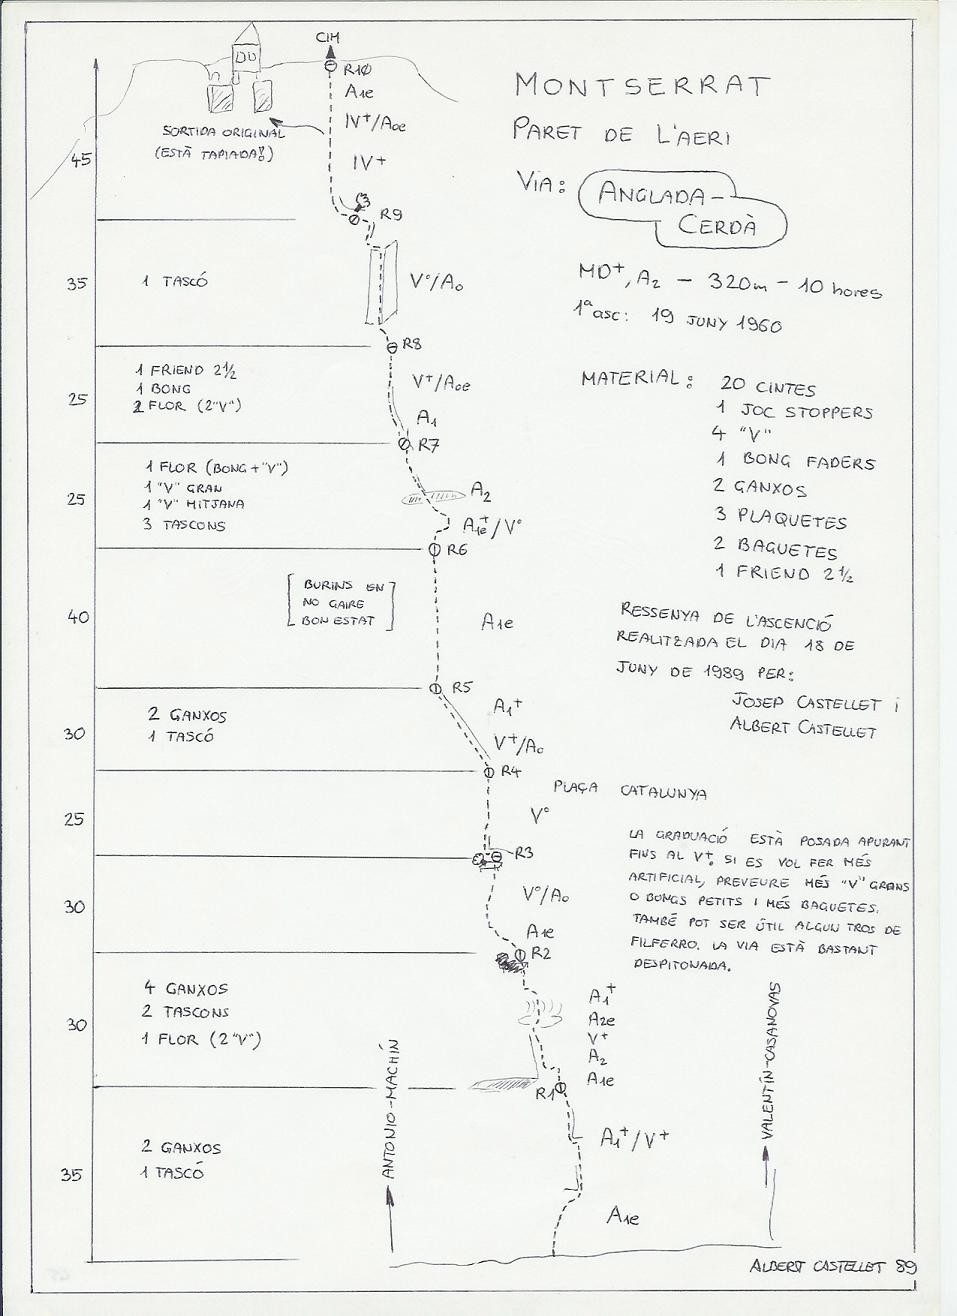 CIM
R10
A1e
IV+/A0e
IV+
SORTIDA ORIGINAL
(ESTÀ TAPIADA!!)
45
R9
MONTSERRAT
PARET DE L'AERI
VIA: ANGLADA-
CERDÀ
MD+, A2 - 320m - 10 hores
1ª asc: 19 JUNY 1960
35
1 TASCÓ
V°/A0
R8
1 FRIEND 2½
1 BONG
2 FLOR (2"V")
25
V+/A0e
A1
R7
MATERIAL: 20 CINTES
1 JOC STOPPERS
4 "V"
1 BONG FADERS
2 GANXOS
3 PLAQUETES
2 BAGUETES
1 FRIEND 2½
1 FLOR (BONG + "V")
1 "V" GRAN
1 "V" MITJANA
3 TASCONS
25
A2
A1e+/V°
R6
BURINS EN
NO GAIRE
BON ESTAT
40
A1e
R5
RESSENYA DE L'ASCENCIÓ
REALITZADA EL DIA 18 DE
JUNY DE 1989 PER:
JOSEP CASTELLET i
ALBERT CASTELLET
2 GANXOS
1 TASCÓ
30
A1+
V+/A0
R4
PLAÇA CATALUNYA
25
V°
R3
30
V°/A0
A1e
R2
LA GRADUACIÓ ESTÀ POSADA APURANT
FINS AL V+. SI ES VOL FER MÉS
ARTIFICIAL, PREVEURE MÉS "V" GRANS
O BONGS PETITS I MÉS BAGUETES.
TAMBÉ POT SER ÚTIL ALGUN TROS DE
FILFERRO. LA VIA ESTÀ BASTANT
DESPITONADA.
4 GANXOS
2 TASCONS
1 FLOR (2 "V")
30
A1+
A2e
V+
A2
A1e
R1
ANTONIO-MACHÍN
VALENTÍN-CASANOVAS
2 GANXOS
1 TASCÓ
35
A1+/V+
A1e
ALBERT CASTELLET 89